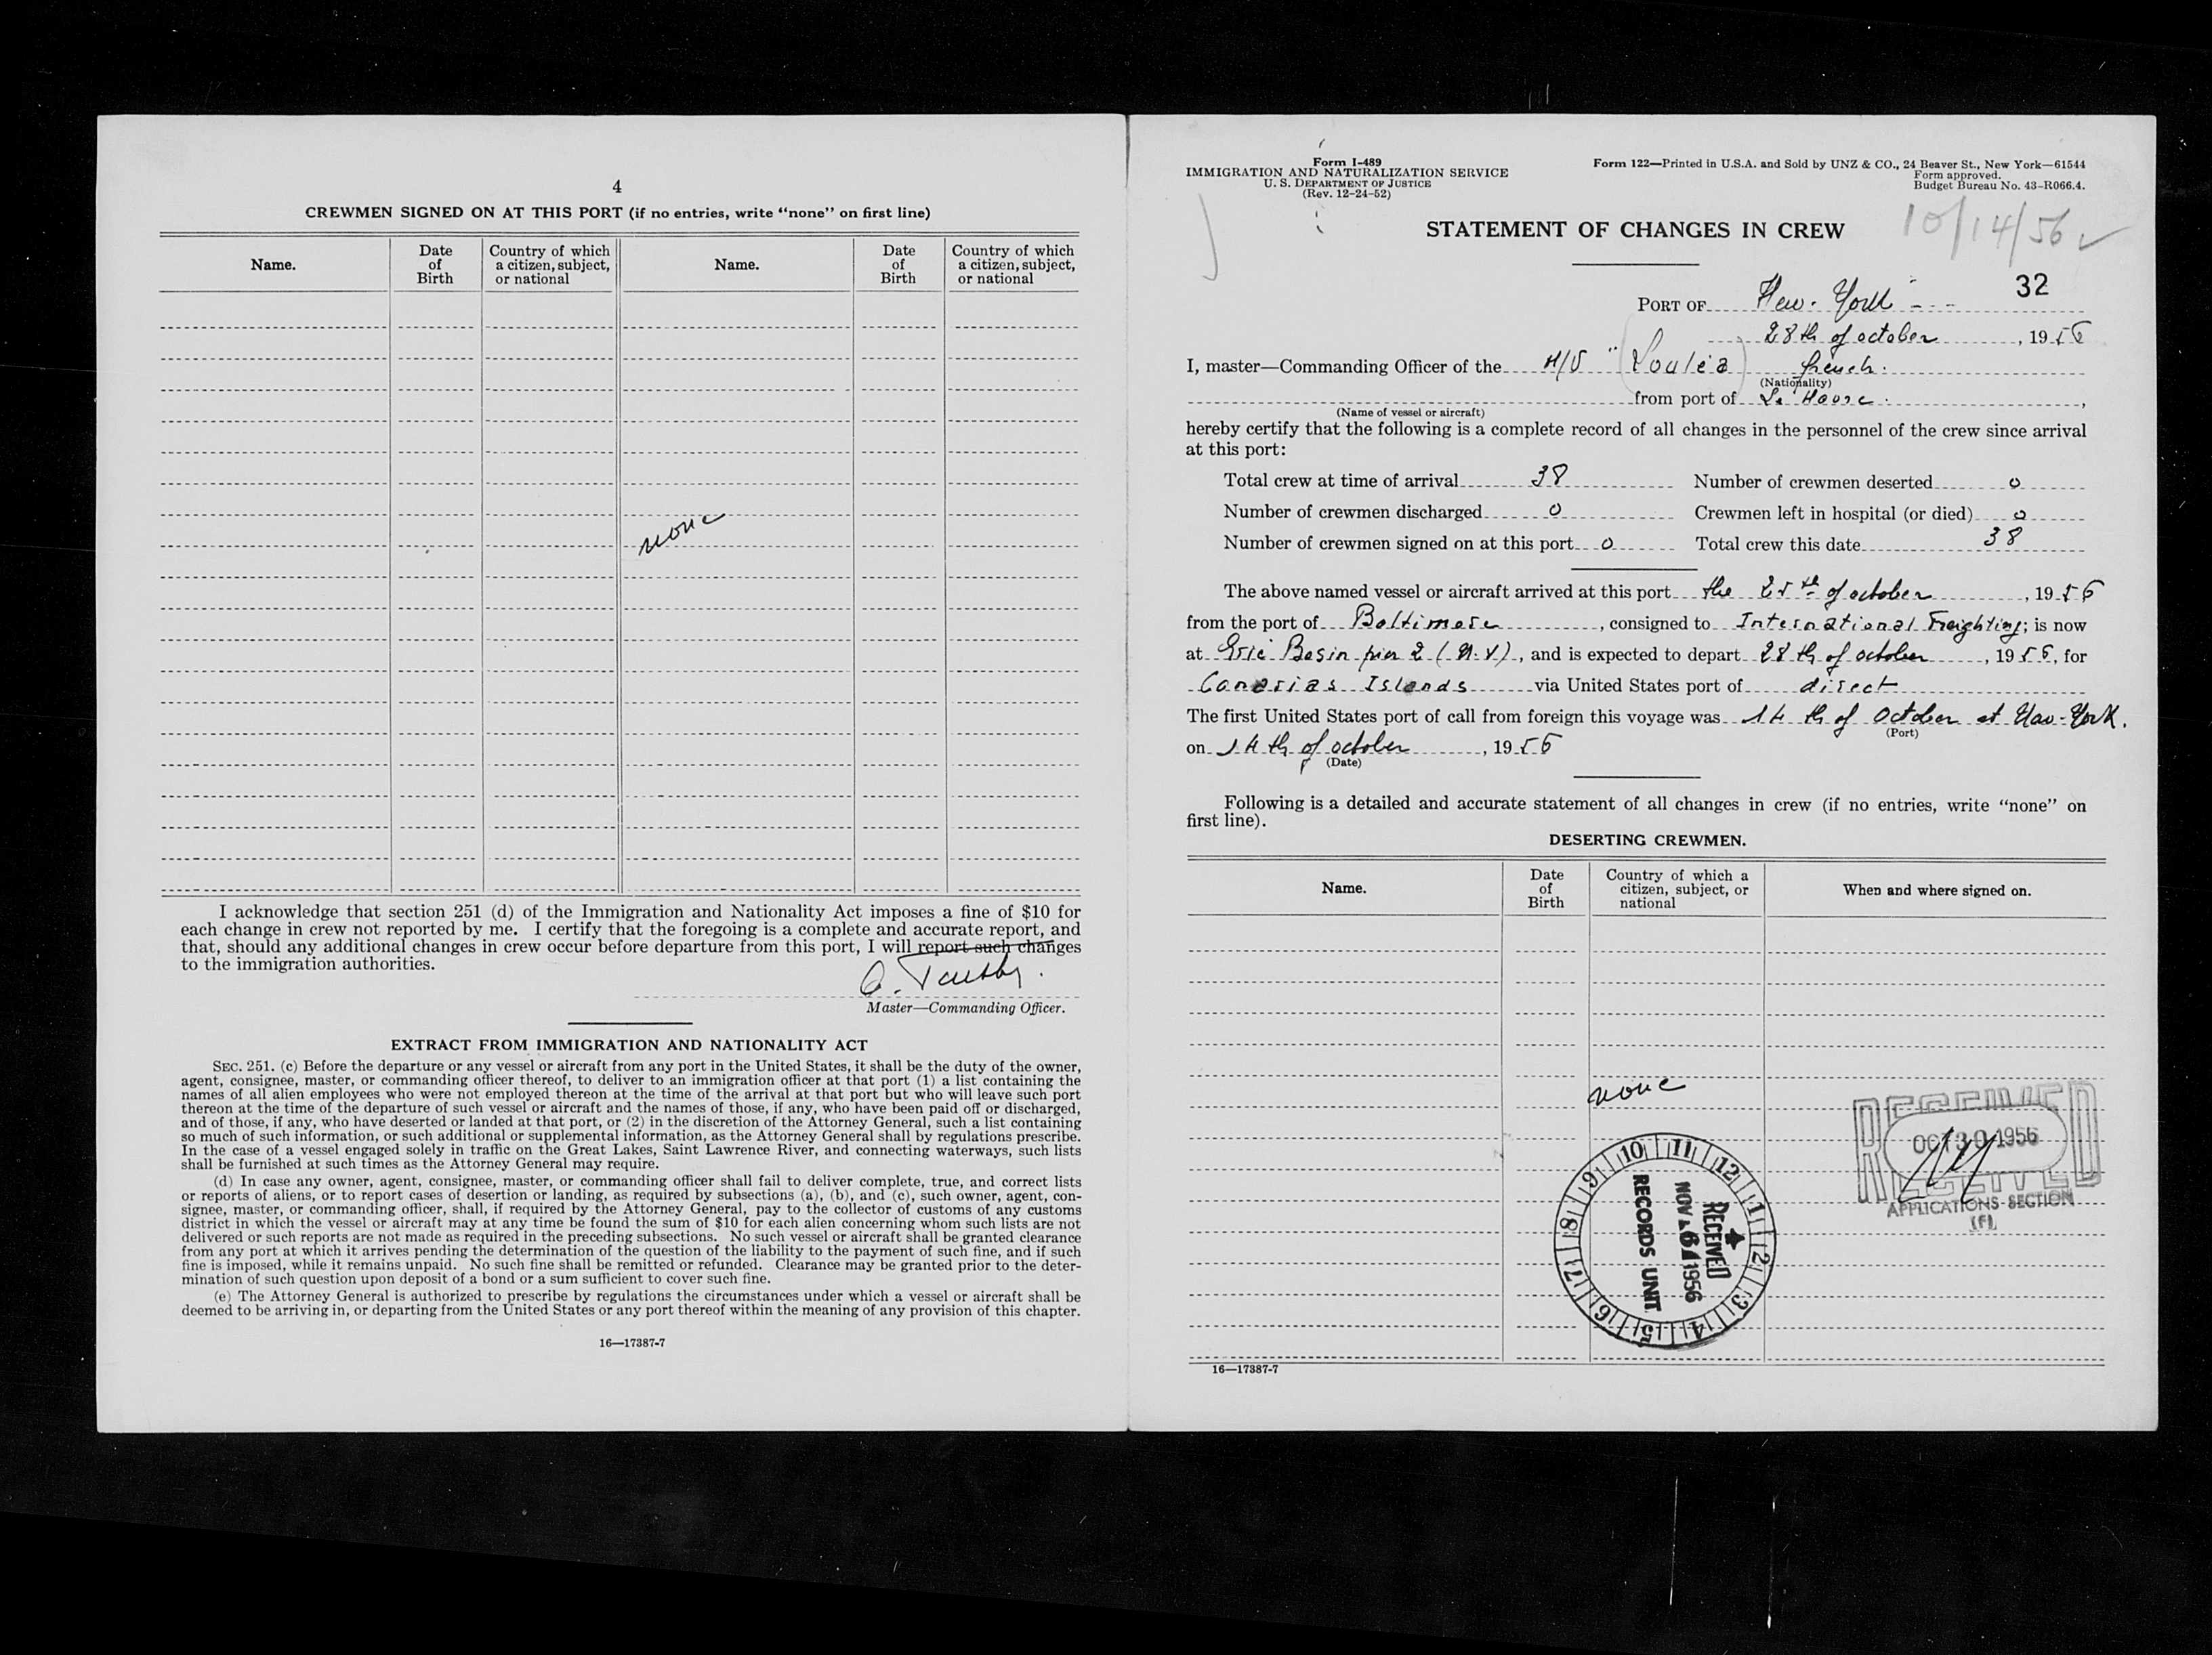 4
CREWMEN SIGNED ON AT THIS PORT (if no entries, write “none” on first line)
Name. Date of Birth Country of which a citizen, subject, or national Name. Date of Birth Country of which a citizen, subject, or national
none
I acknowledge that section 251 (d) of the Immigration and Nationality Act imposes a fine of $10 for
each change in crew not reported by me. I certify that the foregoing is a complete and accurate report, and
that, should any additional changes in crew occur before departure from this port, I will report such changes
to the immigration authorities.
Master—Commanding Officer.
EXTRACT FROM IMMIGRATION AND NATIONALITY ACT
SEC. 251. (c) Before the departure or any vessel or aircraft from any port in the United States, it shall be the duty of the owner,
agent, consignee, master, or commanding officer thereof, to deliver to an immigration officer at that port (1) a list containing the
names of all alien employees who were not employed thereon at the time of the arrival at that port but who will leave such port
thereon at the time of the departure of such vessel or aircraft and the names of those, if any, who have been paid off or discharged,
and of those, if any, who have deserted or landed at that port, or (2) in the discretion of the Attorney General, such a list containing
so much of such information, or such additional or supplemental information, as the Attorney General shall by regulations prescribe.
In the case of a vessel engaged solely in traffic on the Great Lakes, Saint Lawrence River, and connecting waterways, such lists
shall be furnished at such times as the Attorney General may require.
(d) In case any owner, agent, consignee, master, or commanding officer shall fail to deliver complete, true, and correct lists
or reports of aliens, or to report cases of desertion or landing, as required by subsections (a), (b), and (c), such owner, agent, con-
signee, master, or commanding officer, shall, if required by the Attorney General, pay to the collector of customs of any customs
district in which the vessel or aircraft may at any time be found the sum of $10 for each alien concerning whom such lists are not
delivered or such reports are not made as required in the preceding subsections. No such vessel or aircraft shall be granted clearance
from any port at which it arrives pending the determination of the question of the liability to the payment of such fine, and if such
fine is imposed, while it remains unpaid. No such fine shall be remitted or refunded. Clearance may be granted prior to the deter-
mination of such question upon deposit of a bond or a sum sufficient to cover such fine.
(e) The Attorney General is authorized to prescribe by regulations the circumstances under which a vessel or aircraft shall be
deemed to be arriving in, or departing from the United States or any port thereof within the meaning of any provision of this chapter.
16—17387-7
Form I-489
IMMIGRATION AND NATURALIZATION SERVICE
U. S. DEPARTMENT OF JUSTICE
(Rev. 12-24-52)
Form 122—Printed in U.S.A. and Sold by UNZ & CO., 24 Beaver St., New York—61544
Form approved.
Budget Bureau No. 43-R066.4.
10/14/56 ✓
STATEMENT OF CHANGES IN CREW
32
PORT OF New-York
28th of october, 1956
I, master—Commanding Officer of the M/V "Louléa french.
(Nationality)
from port of Le Havre.,
(Name of vessel or aircraft)
hereby certify that the following is a complete record of all changes in the personnel of the crew since arrival
at this port:
Total crew at time of arrival 38 Number of crewmen deserted 0
Number of crewmen discharged 0 Crewmen left in hospital (or died) 0
Number of crewmen signed on at this port 0 Total crew this date 38
The above named vessel or aircraft arrived at this port the 25th of october, 1956
from the port of Baltimore, consigned to International Freighting; is now
at Erie Basin pier 2 (N.Y), and is expected to depart 28th of october, 1956, for
Canarias Islands via United States port of direct
The first United States port of call from foreign this voyage was 14 th of October at New-York.
(Port)
on 14th of october, 1956
(Date)
Following is a detailed and accurate statement of all changes in crew (if no entries, write “none” on
first line).
DESERTING CREWMEN.
Name. Date of Birth Country of which a citizen, subject, or national When and where signed on.
none
RECEIVED
OCT 30 1956
RECEIVED
APPLICATIONS SECTION
(F)
10 11 12 1 2 3 4 5 6 7 8 9
RECEIVED
NOV 6 1956
RECORDS UNIT
16—17387-7